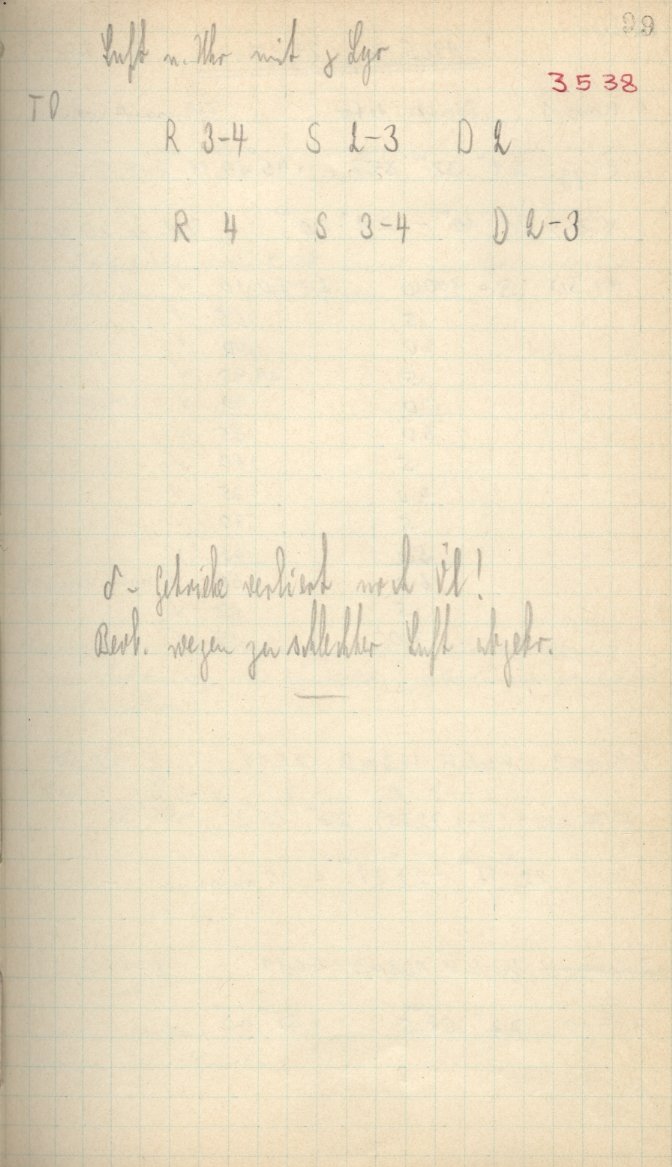 99
Luft u. Uhr mit γ Lyr
3538
TD
R 3-4 S 2-3 D 2
R 4 S 3-4 D 2-3
δ - Getriebe verliert noch Öl!
Beob. wegen zu schlechter Luft abgebr.